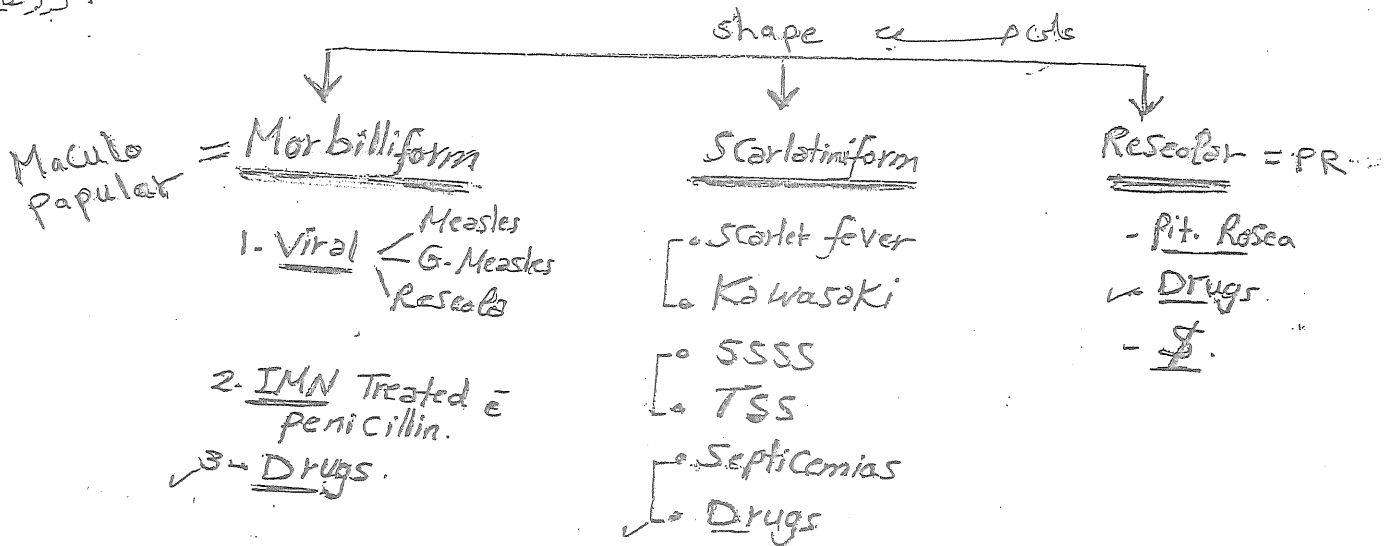 shape
Maculo
papular = Morbilliform
1- Viral
Measles
G-Measles
Reseola
2- IMN Treated c̄
penicillin.
✓3- Drugs.
Scarlatiniform
• Scarlet fever
• Kawasaki
• SSSS
• TSS
• Septicemias
✓ • Drugs
Reseolar = PR
- Pit. Rosea
✓- Drugs.
- $.